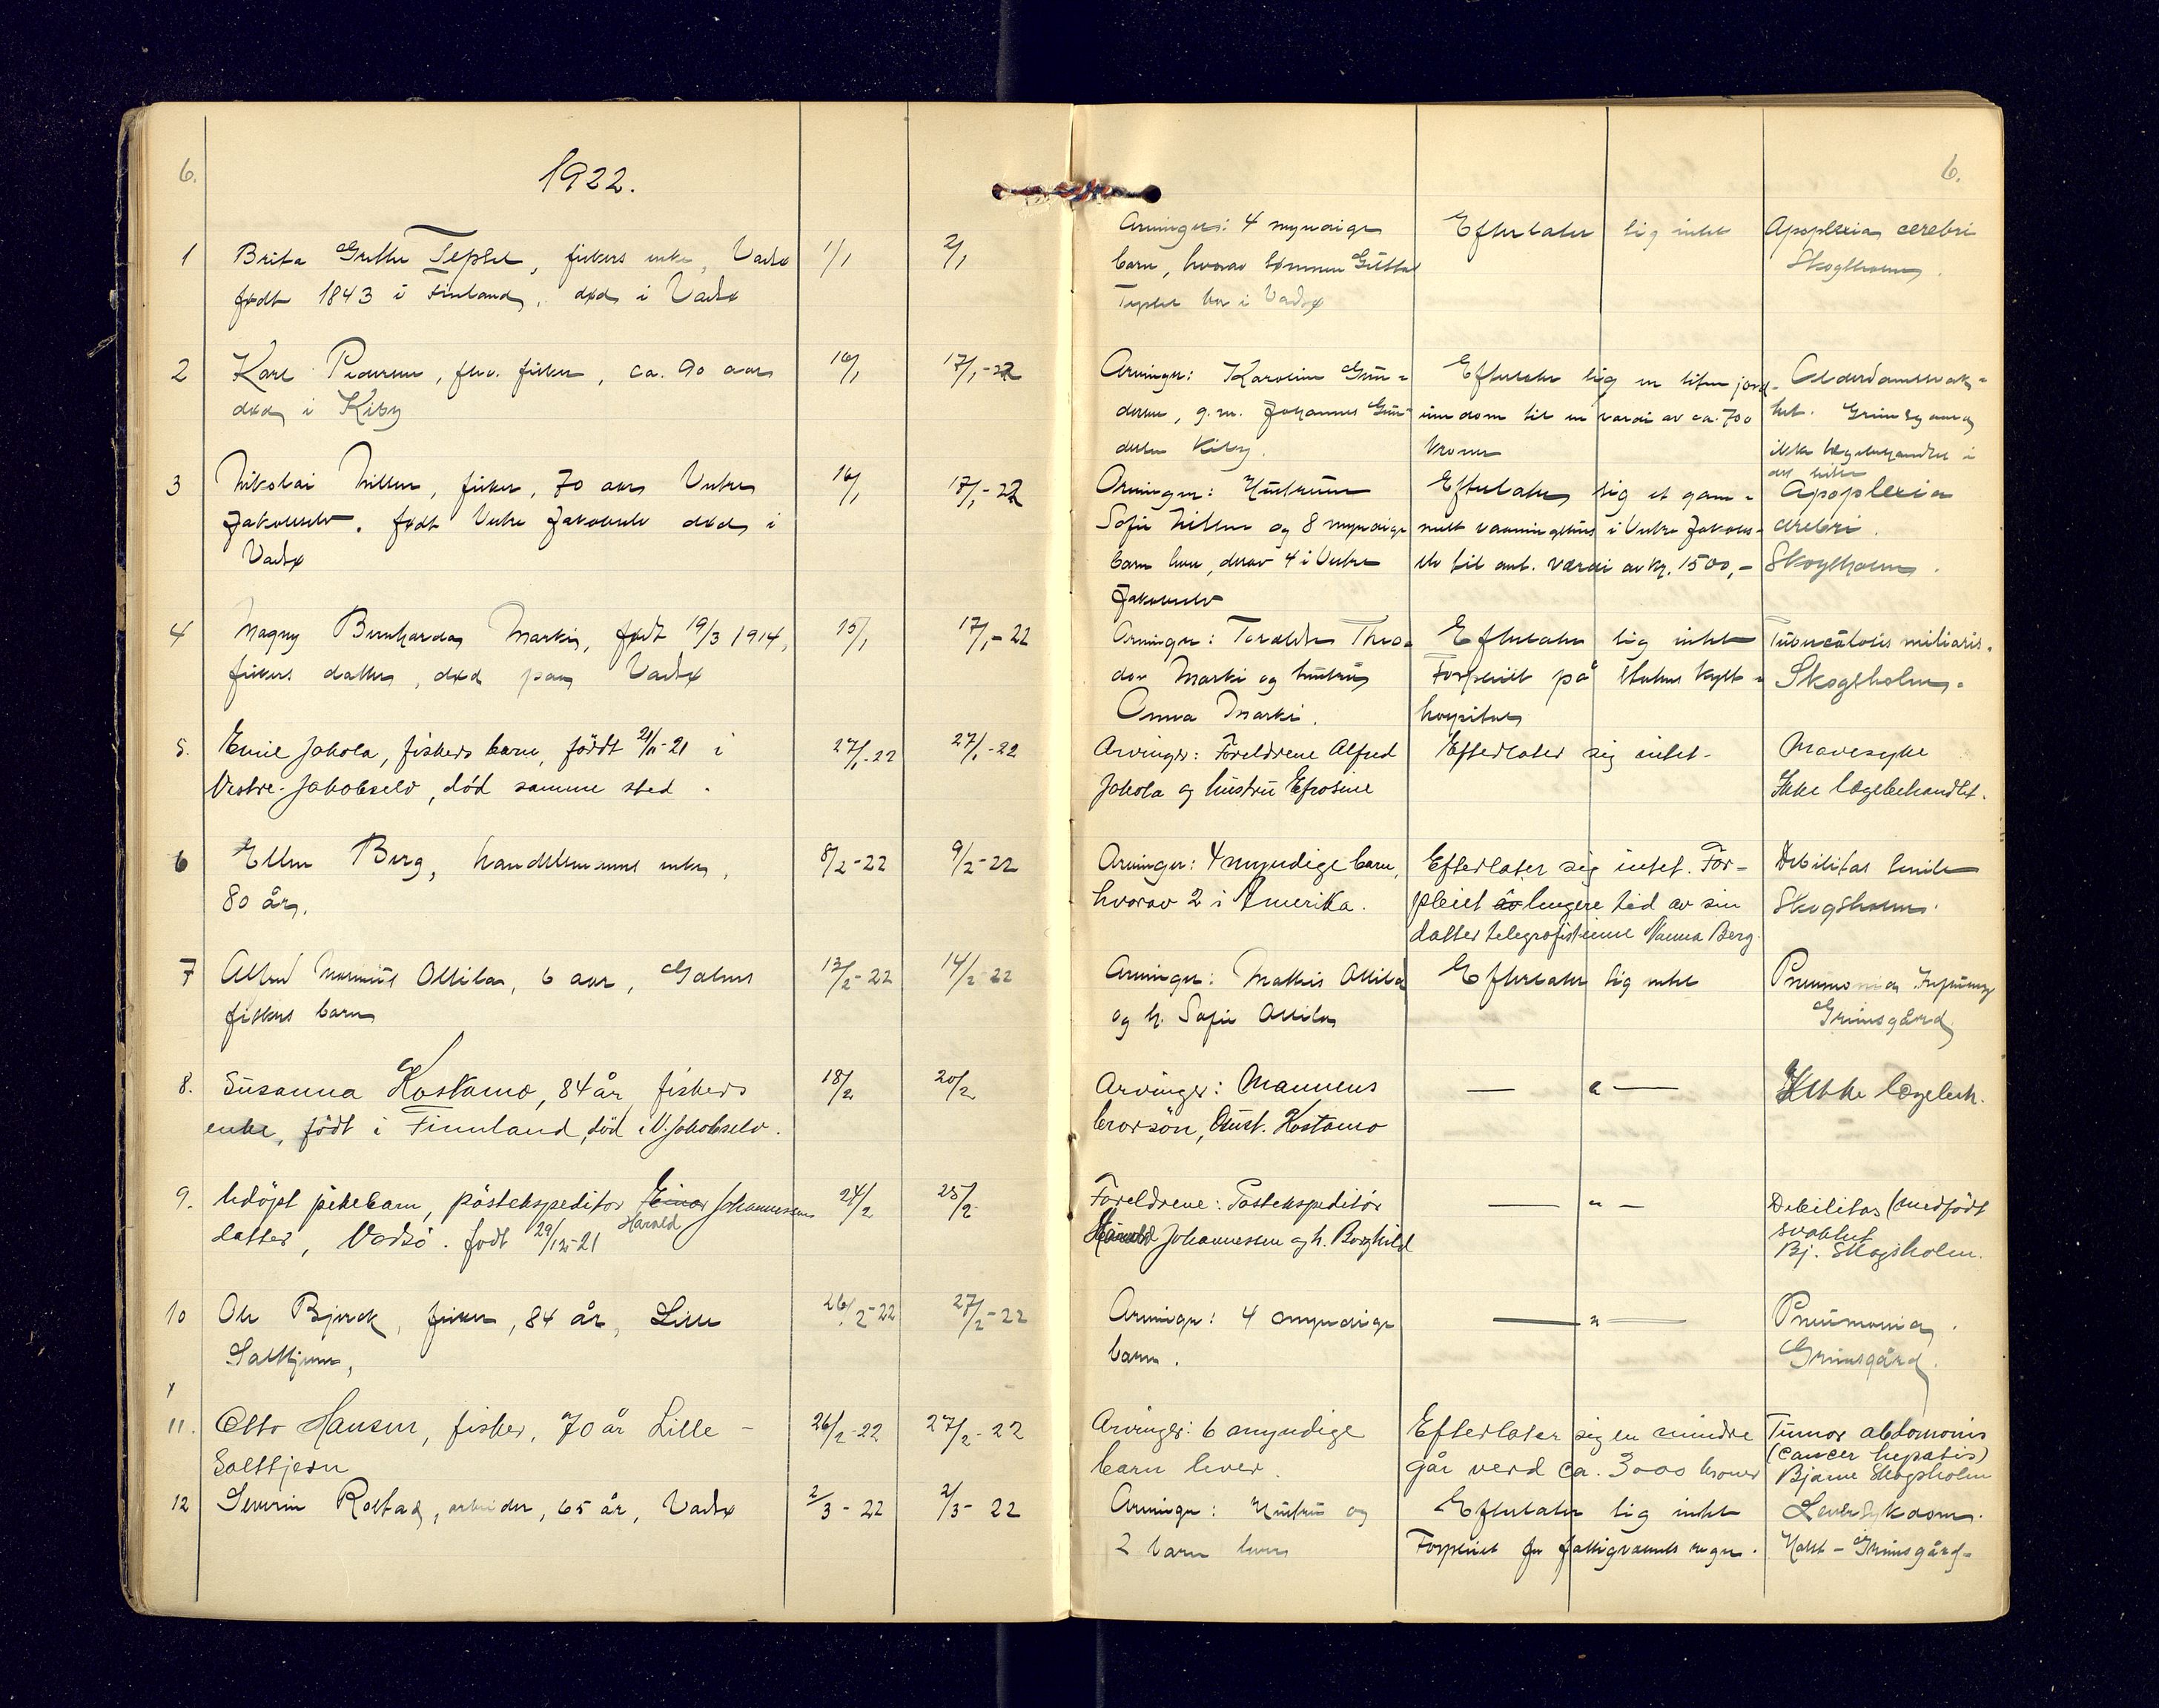 6.
1922.
6.
1 Brita Grethe Teplet, fiskers enke, Vadsø 1/1 2/1
født 1843 i Finland, død i Vadsø
Arvinger: 4 myndige
barn, hvorav sønnen
bor i Vadsø
Efterlater sig intet
Apoplexia cerebri
Skogsholm.
2 Karl Pedersen, fhv. fisker, ca. 90 aar 16/1 17/1-22
død i Kiby
Arvinger: Karoline Gun-
dersen, g.m. Johannes Gun-
dersen Kiby.
Efterlater sig en liten jord-
eiendom til en værdi av ca. 700
kroner
Alderdomssvak-
het. Grimsgaard
ikke lægebehandlet i
det siste
3 Nikolai Nilsen, fisker, 70 aar Vestre 16/1 17/1-22
Jakobselv. født Vestre Jakobselv død i
Vadsø
Arvinger: Hustruen
Sofie Nilsen og 8 myndige
barn lever, derav 4 i Vestre
Jakobselv
Efterlater sig et gam-
melt vaaningshus i Vestre Jakobs-
elv til ant. værdi av kr. 1500,-
Apoplexia
cerebri.
Skogsholm.
4 Magny Bernharda Marki, født 19/3 1914, 15/1 17/1-22
fiskers datter, død paa Vadsø
Arvinger: Theo-
dor Marki og hustru
Anna Marki.
Efterlater sig intet
Forpleiet på statens kyst-
hospital
Tuberculosis miliaris.
Skogsholm.
5. Emil Jokola, fiskers barn, født 21/11-21 i 27/1-22 27/1-22
Vestre-Jakobselv, død samme sted.
Arvinger: Foreldrene Alfred
Jokola og hustru Efrosine
Efterlater sig intet-
Mavesyke
Ikke lægebehandlet.
6 Ellen Berg, handelsmanns enke, 8/2-22 9/2-22
80 år.
Arvinger: 4 myndige barn,
hvorav 2 i Amerika.
Efterlater sig intet. For-
pleiet lengere tid av sin
datter telegrafistinne Nanna Berg.
Debilitas senile
Skogsholm.
7 Alfred Ollila, 6 aar, Golnes 12/2-22 14/2-22
fiskers barn
Arvinger: Mathis Ollila
og h. Sofie Ollila
Efterlater sig intet
Pneumonia
Grimsgård
8. Susanna Kostamo, 84 år, fiskers 18/2 20/2
enke, født i Finnland, død i V. Jakobselv.
Arvinger: Mannens
brorsön, Aust. Kostamo
— " —
Ikke lægebeh.
9. Udöpt pikebarn, postekspeditör Einar Johannessens 24/2 25/2
Harald
datter, Vadsö. født 29/12-21
Foreldrene: Postekspeditör
Harald Johannessen og h. Borghild
— " —
Debilitas (medfödt
svakhet
Bj. Skogsholm.
10 Ole Bjerck, fisker, 84 år, Lille 26/2-22 27/2-22
Saltjern,
Arvinger: 4 myndige
barn.
— " —
Pneumonia.
Grimsgård.
11. Otto Hansen, fisker, 70 år Lille- 26/2-22 27/2-22
Saltjern
Arvinger: 6 myndige
barn lever.
Efterlater sig en mindre
går verd ca. 3000 kroner
Tumor abdomonis
(cancer hepatis)
Bjarne Skogsholm
12 Severin Rostad, arbeider, 65 år, Vadsø 2/3-22 2/3-22
Arvinger: Hustru og
2 barn lever
Efterlater sig intet
Forpleiet for fattigvæsenets regn.
Leversykdom.
Holst-Grimsgård-